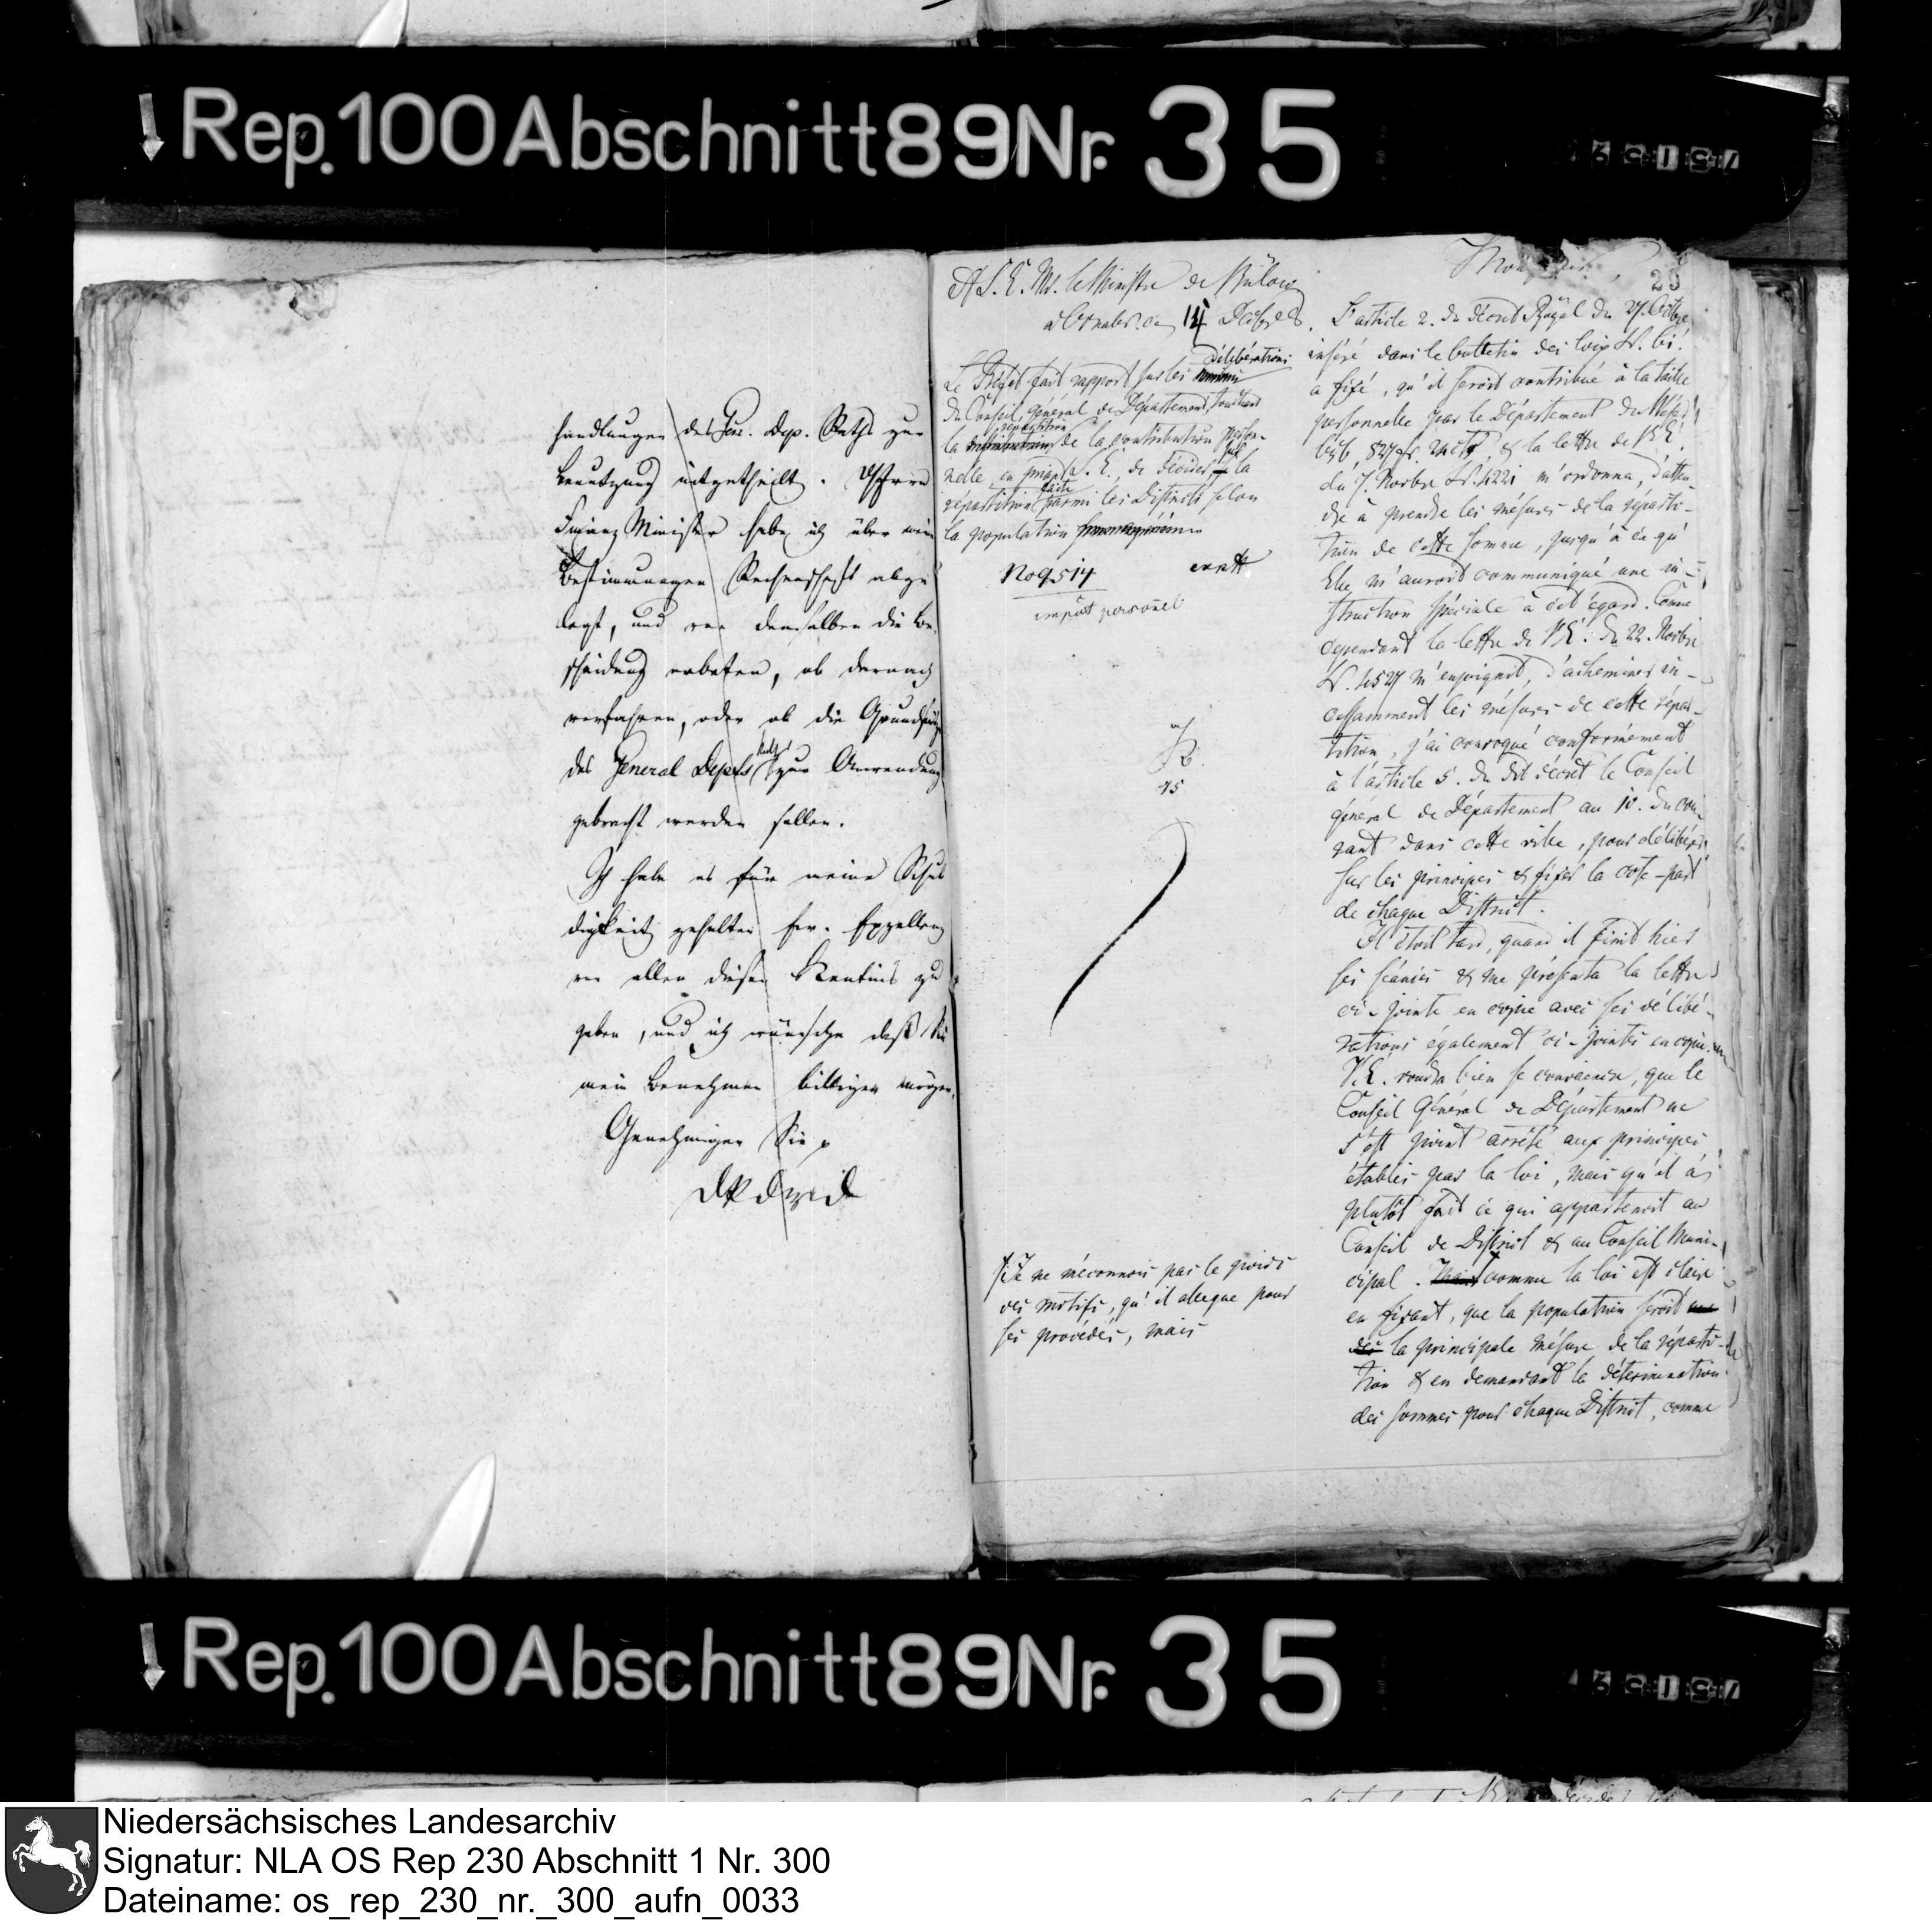 Rep. 100 Abschnitt 89 Nr. 35
handlungen des Gen. Dep. Raths zur
Benutzung mitgetheilt.
Finanz Minister habe ich über meine
Bestimmungen Rechenschaft abge
legt, und von demselben die Be-
scheidung erbeten, ob darnach
verfahren, oder ob die Grundsätze
des General Depts Raths zur Anwendung
gebracht werden sollen.
Ich habe es für meine Schul
digkeit gehalten Ew. Excellenz
von allen diesen Kentnis zu
geben, und ich wünsche daß Sie
mein Benehmen billigen mögen.
Genehmigen Sie
A S. E. Mr. le Ministre de Bülow
à Osnabr. ce 14 Decbr 8.
Le Préfet fait rapport sur les délibérations
du Conseil général de Département, touchant
la répartition de la contribution person-
nelle, en priant S. E. de décider sur la
répartition faite parmi les Districts selon
la population
No 9514
exp
impôt personel
15
Je ne méconnois pas le poids
des motifs, qu'il alegue pour
ses procédés, mais
23
Monseigneur,
L'article 2. du décret Royal du 27. Octbre
inséré dans le bulletin des loix Nr. 61.
a fixé, qu'il seroit contribué à la taille
personnelle par le Département du Wéser
& la lettre de V. E.
du 7. Novbre Nr. 4221 m'ordonna, d'atten-
dre à prendre les mésures de la réparti-
tion de cette somme, jusqu'à ce qu'
Elle m'auroit communiqué une in-
struction spéciale à cet égard. Comme
cependant la lettre de V. E. du 22. Novbre
Nr. 4527 m'enjoignit, d'acheminer in-
cessamment les mésures de cette répar-
tition, j'ai convoqué conformément
à l'article 5. du dit décret le Conseil
général de Département au 10. du cou-
rant dans cette ville, pour délibérer
sur les principes & fixer la cote-part
de chaque District.
Il étoit tard, quand il finit hier
ses séances & me présenta la lettre
ci-jointe en copie avec ses délibé-
rations également ci-jointes en copie.
V. E. voudra bien se convaincre, que le
Conseil Général de Département ne
s'est point arrêté aux principes
établis par la loi, mais qu'il a
plutôt fait ce qui appartenoit au
Conseil de District & au Conseil Muni-
cipal. Mais comme la loi est claire
en fixant, que la population seroit
la principale mésure de la réparti-
tion & en demandant la détermination
des sommes pour chaque District, comme
Rep. 100 Abschnitt 89 Nr. 35
Niedersächsisches Landesarchiv
Signatur: NLA OS Rep 230 Abschnitt 1 Nr. 300
Dateiname: os_rep_230_nr._300_aufn_0033